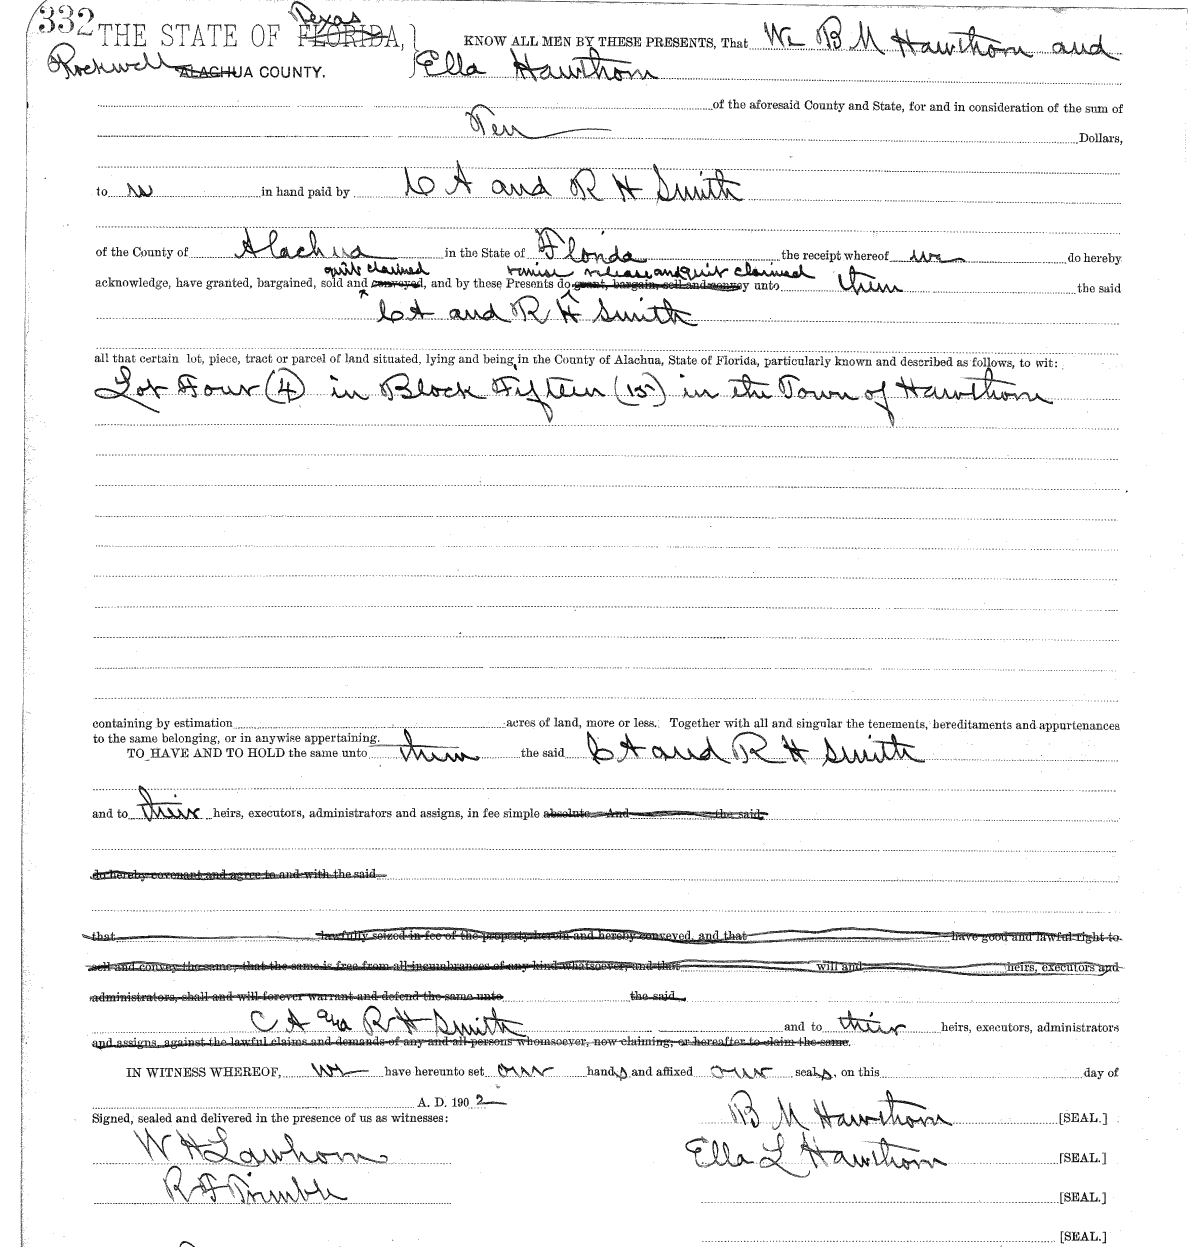 332 THE STATE OF FLORIDA, Texas } KNOW ALL MEN BY THESE PRESENTS, That We B M Hawthorn and
Rockwell ALACHUA COUNTY. } Ella Hawthorn
of the aforesaid County and State, for and in consideration of the sum of
Ten Dollars,
to us in hand paid by C A and R H Smith
of the County of Alachua in the State of Florida the receipt whereof we do hereby
quit claimed remise release and quit claimed
acknowledge, have granted, bargained, sold and conveyed, and by these Presents do grant, bargain, sell and convey unto them the said
C A and R H Smith
all that certain lot, piece, tract or parcel of land situated, lying and being in the County of Alachua, State of Florida, particularly known and described as follows, to wit:
Lot Four (4) in Block Fifteen (15) in the Town of Hawthorn
containing by estimation acres of land, more or less. Together with all and singular the tenements, hereditaments and appurtenances
to the same belonging, or in anywise appertaining.
TO HAVE AND TO HOLD the same unto them the said C A and R H Smith
and to their heirs, executors, administrators and assigns, in fee simple absolute. And the said
do hereby covenant and agree to and with the said
that lawfully seized in fee of the property herein and hereby conveyed, and that have good and lawful right to
sell and convey the same; that the same is free from all incumbrances of any kind whatsoever, and that will and heirs, executors and
administrators, shall and will forever warrant and defend the same unto the said
C A and R H Smith and to their heirs, executors, administrators
and assigns, against the lawful claims and demands of any and all persons whomsoever, now claiming, or hereafter to claim the same.
IN WITNESS WHEREOF, we have hereunto set our hands and affixed our seals, on this day of
A. D. 1902
Signed, sealed and delivered in the presence of us as witnesses: B M Hawthorn [SEAL.]
W H Lawhorn Ella L Hawthorn [SEAL.]
R F Trimble [SEAL.]
[SEAL.]